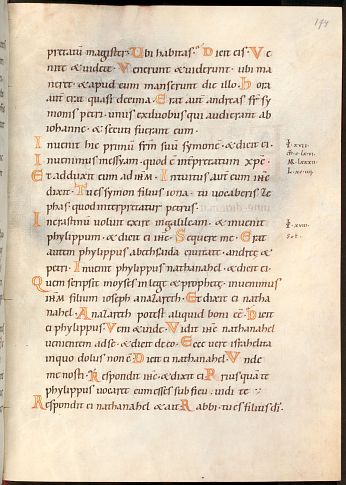 pretatū magister. Ubi habitas. Dicit eis. Ve
nite & videte. Venerunt & viderunt ubi ma
neret. & apud eum manserunt die illo. Hora
aut erat quasi decima. Erat aut andreas fr̄ sy
monis petri. unus ex duobus qui audierant ab
iohanne. & secuti fuerant eum.
Invenit hic primū frm̄ suū symonē. & dicit ei.
Invenimus messyam. quod ē interpretatum xp̄c.
Et adduxit eum ad ih̄m. Intuitus aut eum ih̄c
dixit. Tu es symon filius iona. tu vocaberis ce
phas. quod interpretatur petrus.
In crastinū voluit exire in galileam. & invenit
phylippum. & dicit ei ih̄c. Sequere me. Erat
autem phylippus a bethsaida civitate andreę &
petri. Invenit phylippus nathanahel. & dicit ei.
Quem scripsit moyses in lege & prophetę. invenimus
ih̄m filium ioseph a nazareth. Et dixit ei natha
nahel. A nazareth potest aliquid boni eē. Dicit
ei phylippus. Veni & vide. Vidit ih̄c nathanahel
venientem ad se. & dicit de eo. Ecce vere israhelita
in quo dolus non ē. Dicit ei nathanahel. Unde
me nosti. Respondit ih̄c & dixit ei. Priusquā te
phylippus vocaret cum esses sub ficu. vidi te
Respondit ei nathanahel & ait. Rabbi. tu es filius dī.